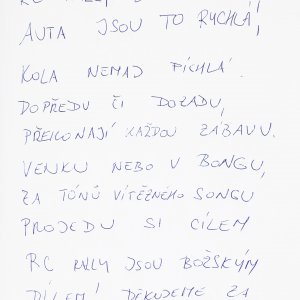 RC
AUTA JSOU TO RYCHLÁ,
KOLA NEMAJ PÍCHLÁ.
DOPŘEDU ČI DOZADU,
PŘEKONAJÍ KAŽDOU ZÁBAVU.
VENKU NEBO V BONGU,
ZA TÓNŮ VÍTĚZNÉHO SONGU
PROJEDU SI CÍLEM
RC RALLY JSOU BOŽSKÝM
DÍLEM! DĚKUJEME ZA